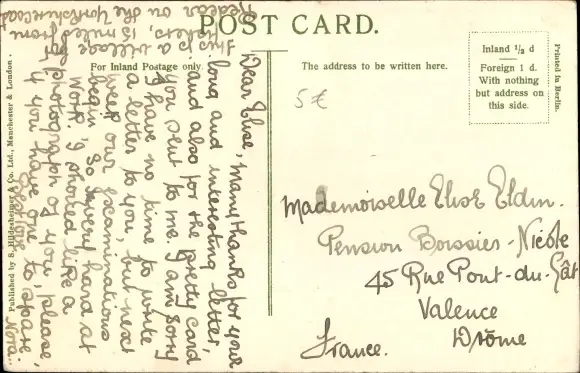 POST CARD.
For Inland Postage only.
The address to be written here.
Inland ½ d
Foreign 1 d.
With nothing
but address on
this side.
Printed in Berlin.
Published by S. Hildesheimer & Co. Ltd., Manchester & London.
5 €
Dear Elise, many thanks for your
long and interesting letter,
and also for the pretty card
you sent to me. I am sorry
I have no time to write
a letter to you, but next
week our examinations
begin, so I very hard at
work. I should like a
photograph of you, please,
if you have one to spare.
Best love
Nora.
This is a village
13 miles from
Redcar on the Yorkshire coast
Mademoiselle Elise Eldin.
Pension Boissier-Nicole
45 Rue Pont-du-Gât
Valence
Drôme
France.